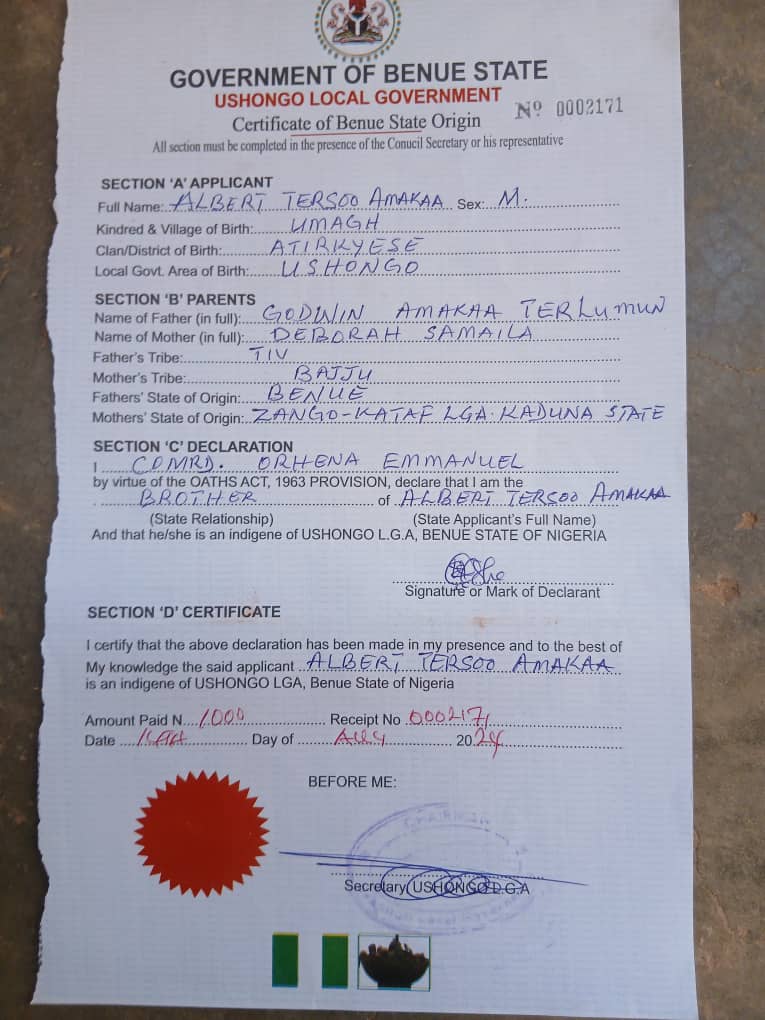 GOVERNMENT OF BENUE STATE
USHONGO LOCAL GOVERNMENT
Nº 0002171
Certificate of Benue State Origin
All section must be completed in the presence of the Conucil Secretary or his representative
SECTION ‘A’ APPLICANT
Full Name: ALBERT TERSOO AMAKAA Sex: M.
Kindred & Village of Birth: UMAGH
Clan/District of Birth: ATIRKYESE
Local Govt. Area of Birth: USHONGO
SECTION ‘B’ PARENTS
Name of Father (in full): GODWIN AMAKAA TERLUMUN
Name of Mother (in full): DEBORAH SAMAILA
Father’s Tribe: TIV
Mother’s Tribe: BAJJU
Fathers’ State of Origin: BENUE
Mothers’ State of Origin: ZANGO-KATAF LGA. KADUNA STATE
SECTION ‘C’ DECLARATION
I COMRD. ORHENA EMMANUEL
by virtue of the OATHS ACT, 1963 PROVISION, declare that I am the
BROTHER of ALBERT TERSOO AMAKAA
(State Relationship) (State Applicant’s Full Name)
And that he/she is an indigene of USHONGO L.G.A, BENUE STATE OF NIGERIA
Signature or Mark of Declarant
SECTION ‘D’ CERTIFICATE
I certify that the above declaration has been made in my presence and to the best of
My knowledge the said applicant ALBERT TERSOO AMAKAA
is an indigene of USHONGO LGA, Benue State of Nigeria
Amount Paid N 1000 Receipt No 0002171
Date Day of AUG 2024
BEFORE ME:
CHAIRMAN
Secretary USHONGO L.G.A
Local Government